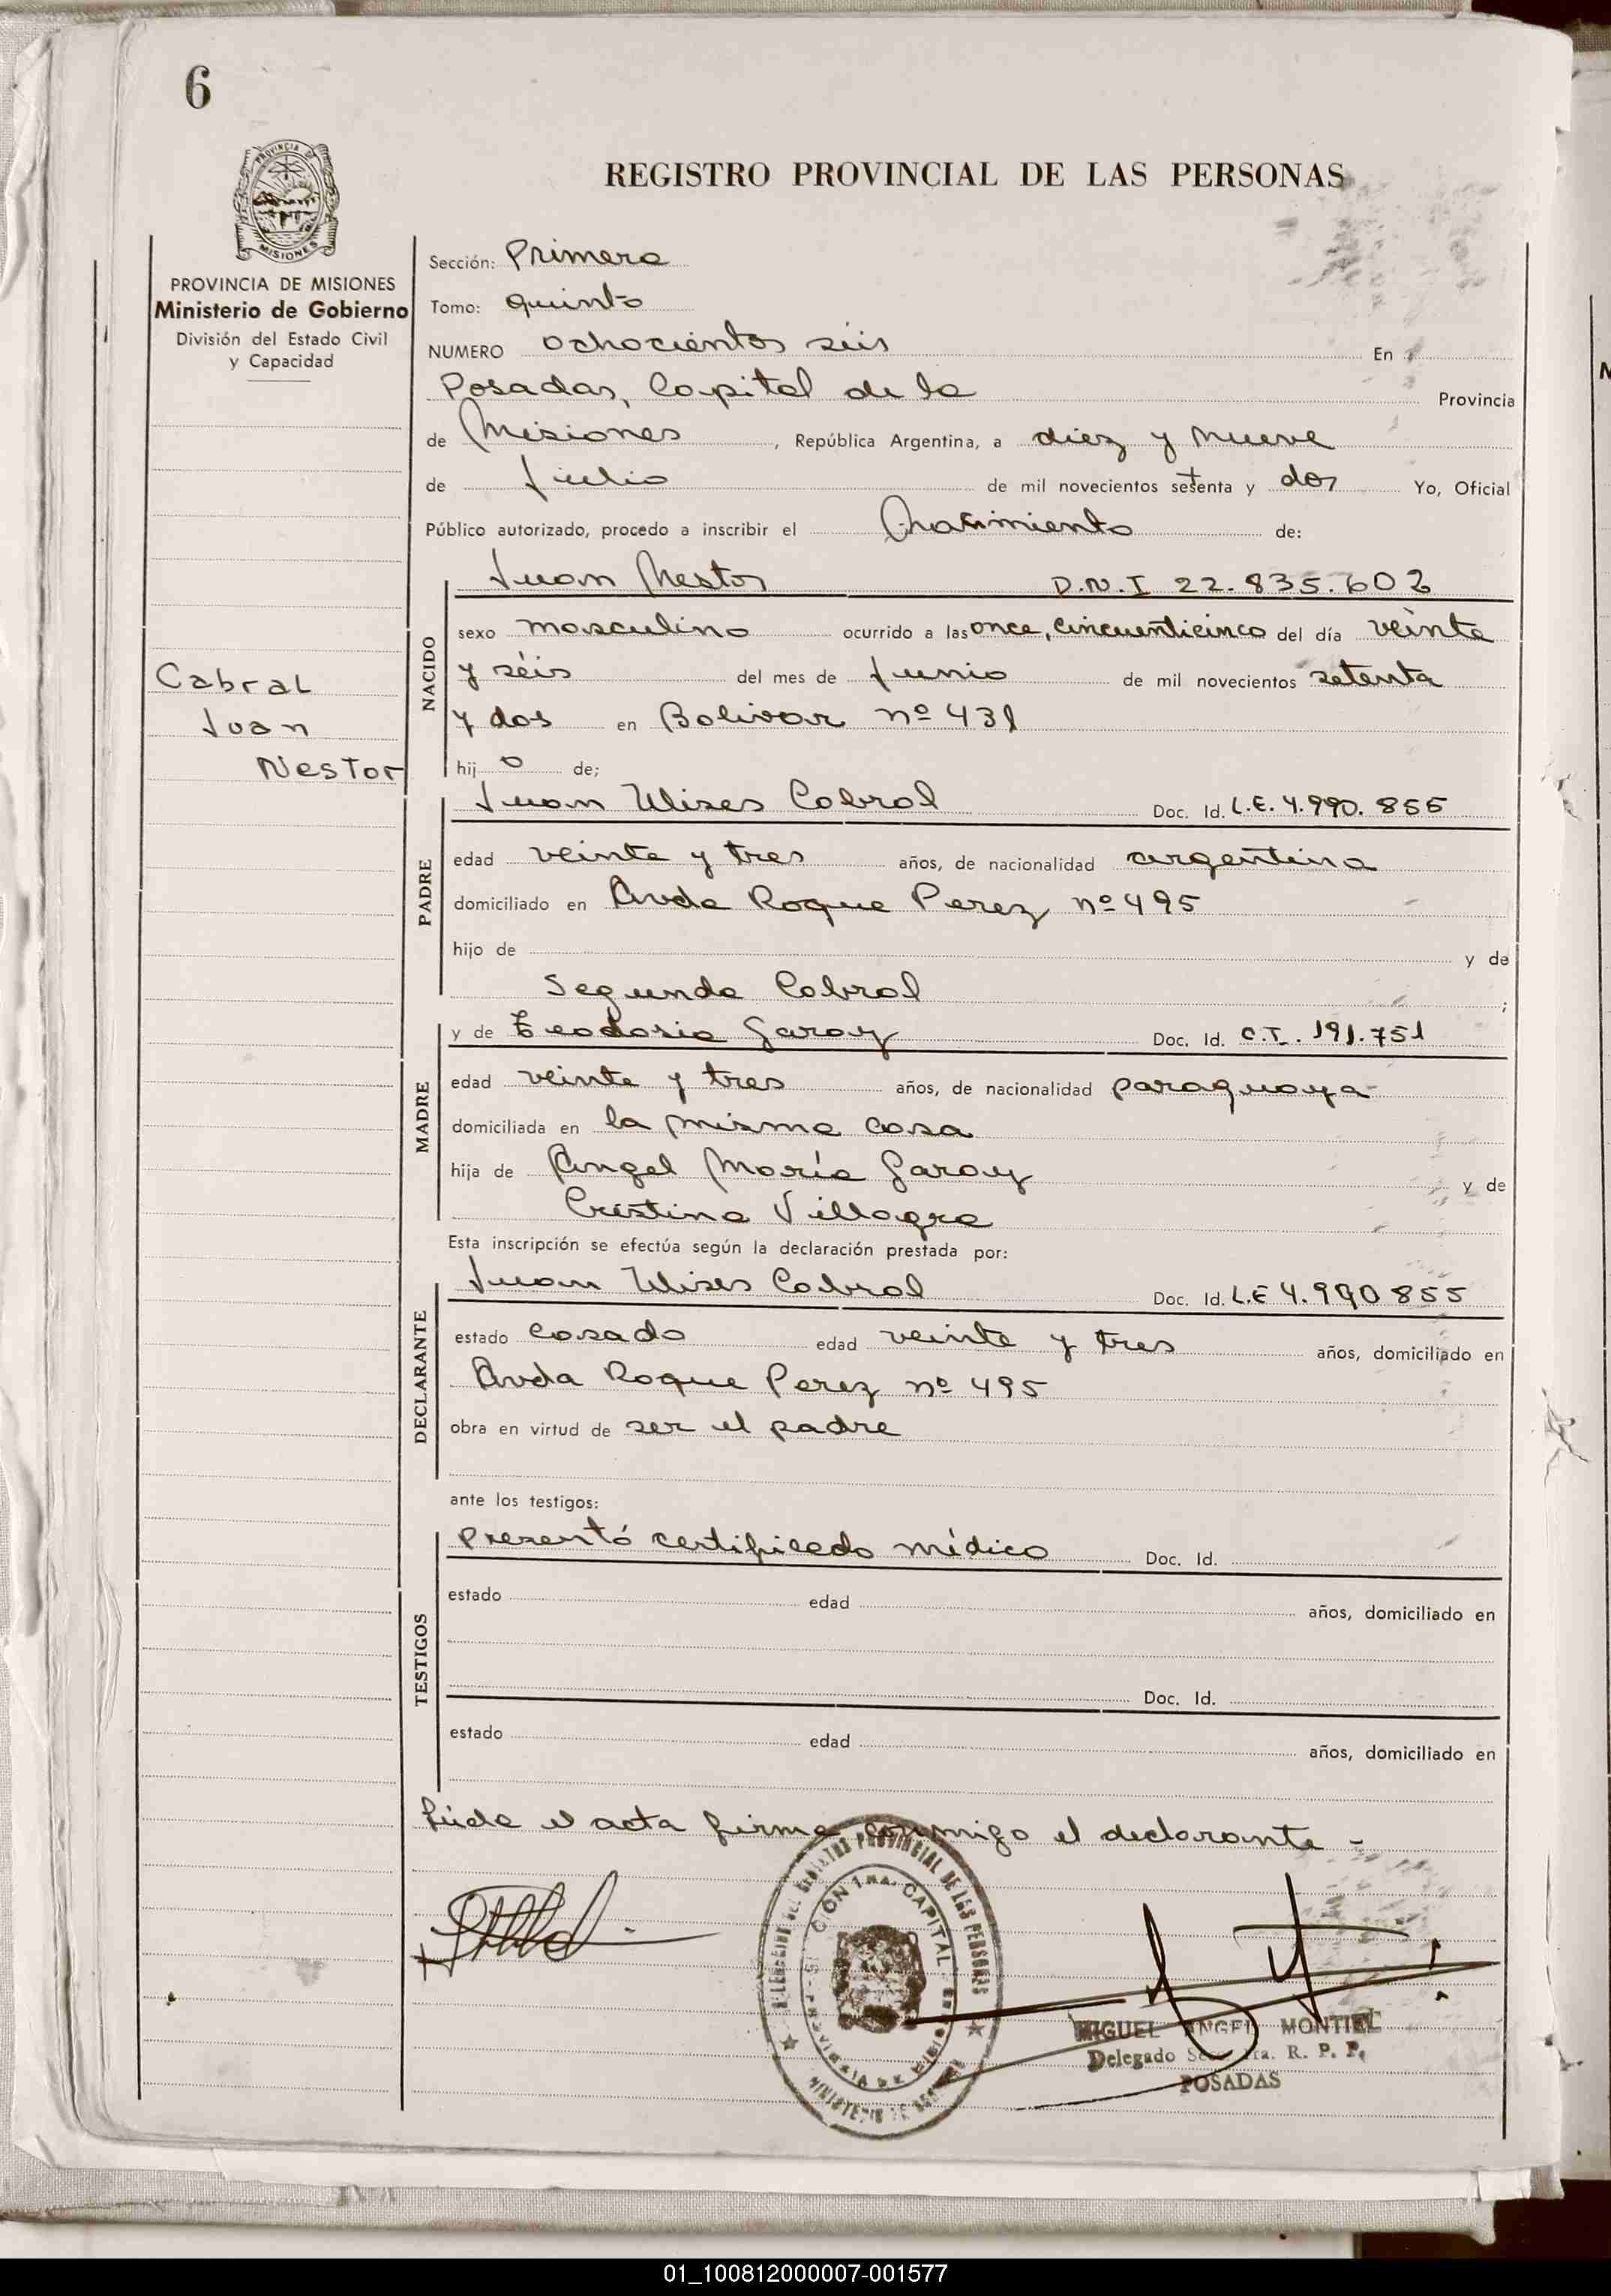 6
PROVINCIA DE
MISIONES
REGISTRO PROVINCIAL DE LAS PERSONAS
PROVINCIA DE MISIONES
Ministerio de Gobierno
División del Estado Civil
y Capacidad
Cabral
Juan
Nestor
Sección: Primera
Tomo: quinto
NUMERO ochocientos séis En
Posadas, Capital de la Provincia
de Misiones, República Argentina, a diez y nueve
de Julio de mil novecientos setenta y dos Yo, Oficial
Público autorizado, procedo a inscribir el Nacimiento de:
Juan Nestor D.N.I 22.835.602
NACIDO
sexo masculino ocurrido a las once, cincuenticinco del día veinte
y séis del mes de Junio de mil novecientos setenta
y dos en Bolivar nº 431
hijo de;
Juan Ulises Cabral Doc. Id. L.E. 4.990.855
PADRE
edad veinte y tres años, de nacionalidad argentina
domiciliado en Avda Roque Perez nº 495
hijo de y de
Segunda Cabral ;
y de Teodosia Garay Doc. Id. C.I. 191.751
MADRE
edad veinte y tres años, de nacionalidad paraguaya-
domiciliada en la misma casa
hija de Angel María Garay y de
Cristina Villagra
Esta inscripción se efectúa según la declaración prestada por:
Juan Ulises Cabral Doc. Id. L.E 4.990855
DECLARANTE
estado casado edad veinte y tres años, domiciliado en
Avda Roque Perez nº 495
obra en virtud de ser el padre
ante los testigos:
Presentó certificado médico Doc. Id.
TESTIGOS
estado edad años, domiciliado en
Doc. Id.
estado edad años, domiciliado en
Leída el acta firma conmigo el declarante -
REGISTRO PROVINCIAL DE LAS PERSONAS
CAPITAL
MIGUEL ANGEL MONTIEL
Delegado Secc. 1ra. R. P. P.
POSADAS
01_100812000007-001577